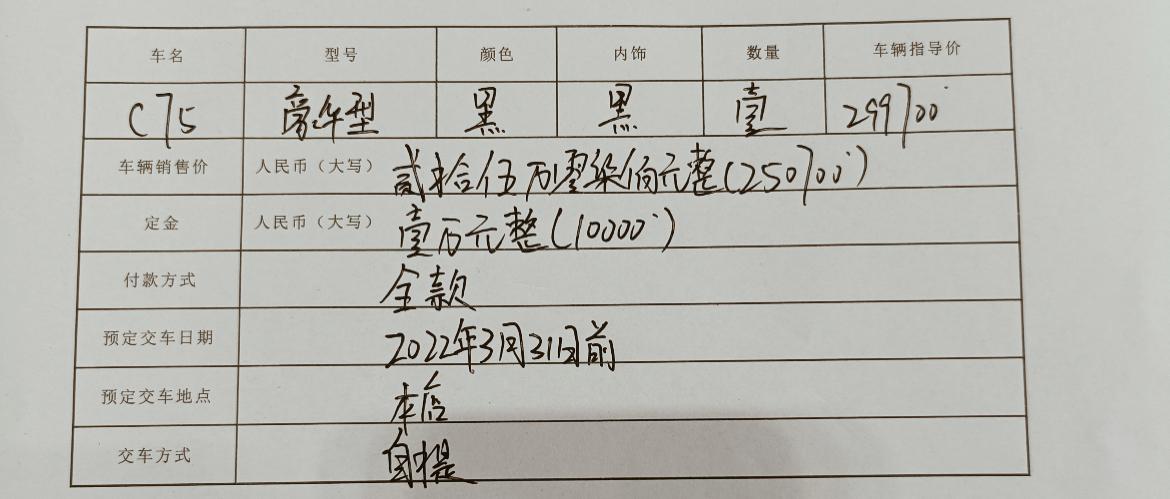 车名 型号 颜色 内饰 数量 车辆指导价
C75 豪华型 黑 黑 壹 299700
车辆销售价 人民币（大写） 贰拾伍万零柒佰元整（250700）
定金 人民币（大写） 壹万元整（10000）
付款方式 全款
预定交车日期 2022年3月31日前
预定交车地点 本店
交车方式 自提